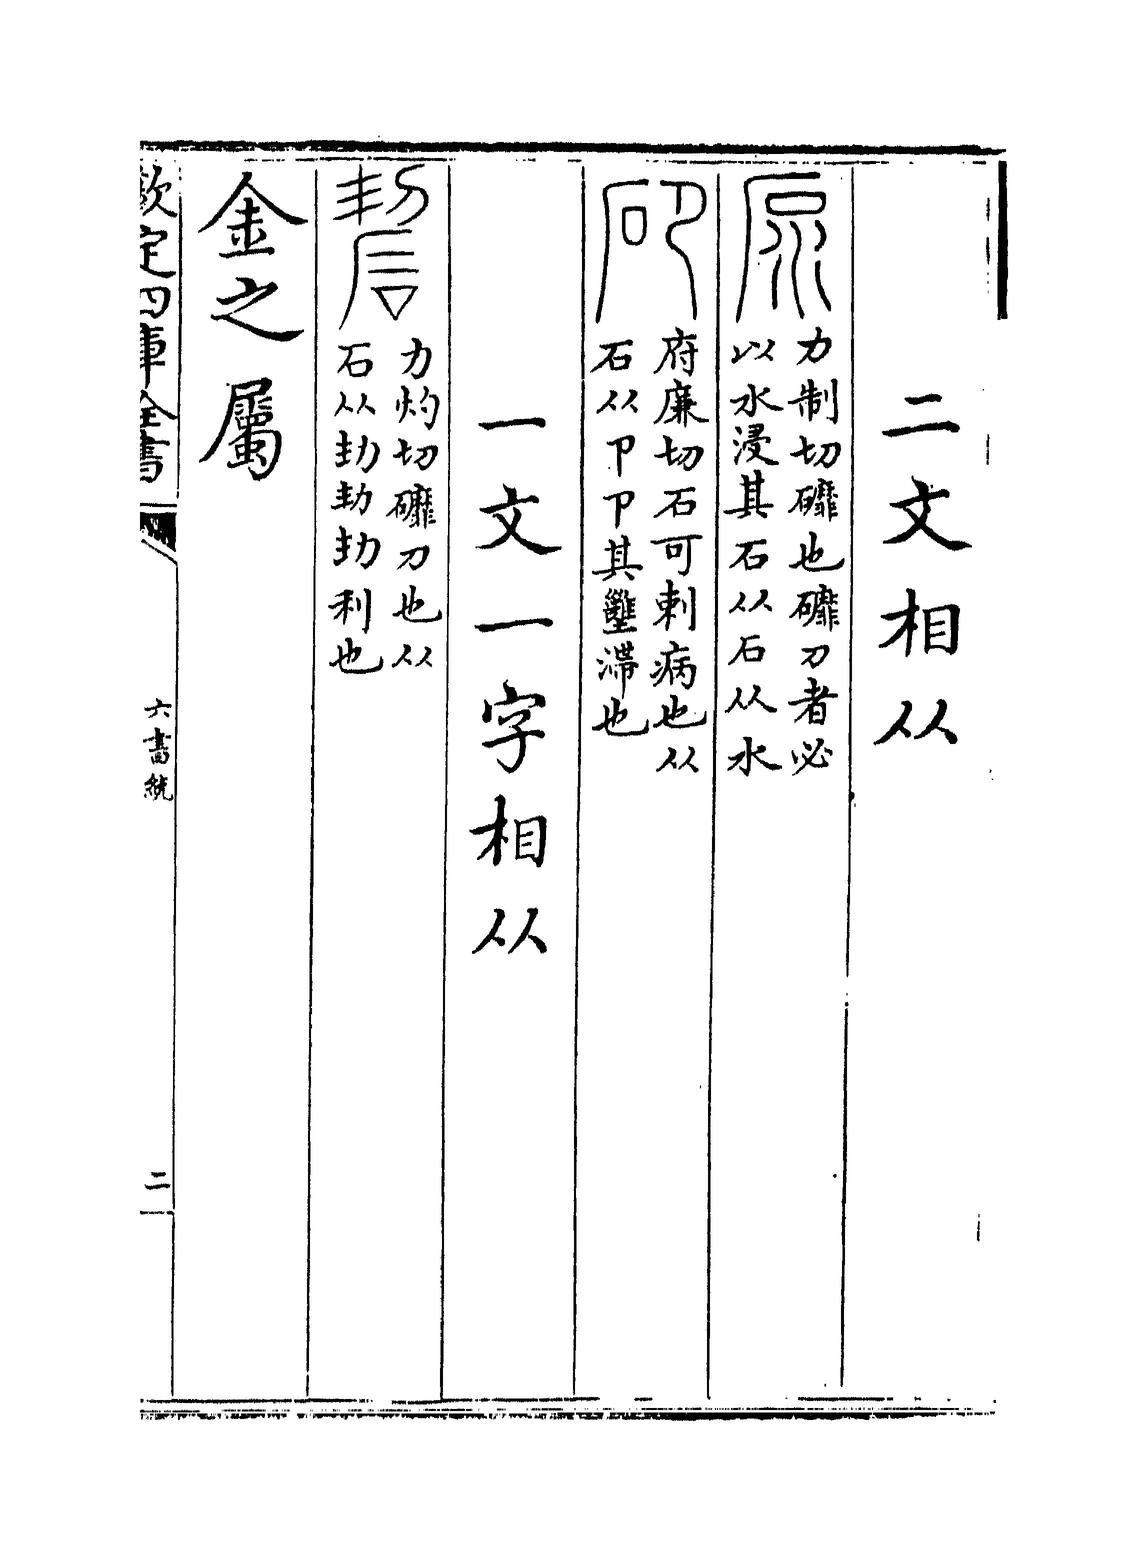 二文相从
砅
力制切䃺也䃺刀者必
以水浸其石从石从水
府廉切石可刺病也从
石从卩卩其壅滯也
一文一字相从
力灼切䃺刀也从
石从㓞㓞㓞利也
金之屬
欽定四庫全書
六書統
二